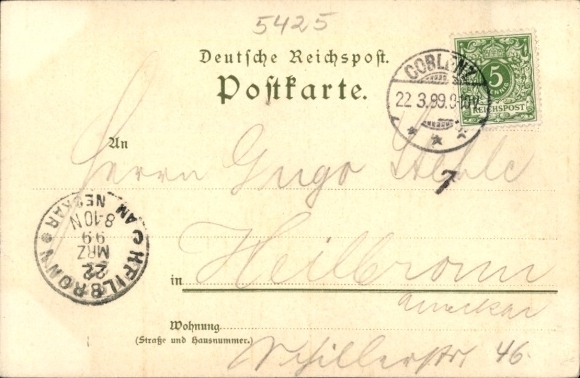 5425
Deutsche Reichspost.
Postkarte.
COBLENZ
22.3.99.9-10V.
5
PFENNIG
REICHSPOST
An
Herrn Hugo Stehle
7
HEILBRONN
AM NECKAR
22
MRZ
99
8-10N
in Heilbronn
a/Neckar
Wohnung
(Straße und Hausnummer.)
Schillerstr. 46.